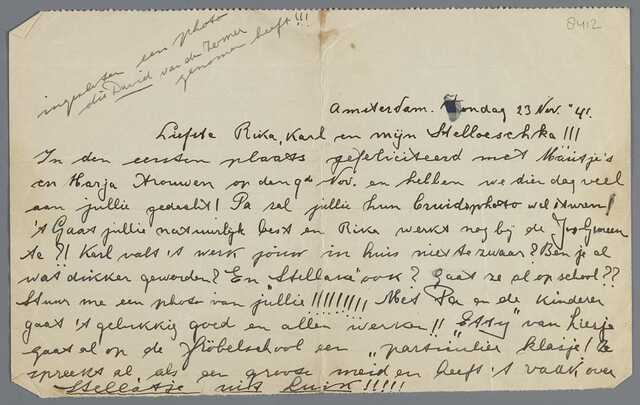 8412
ingesloten een photo
die David van de Zomer
genomen heeft!!!
Amsterdam. Zondag 23 Nov. "41.
Liefste Rika, Karl en mijn Stelloeschka!!!
In den eersten plaats gefeliciteerd met Mautje's
en Harja Trouwen op den 9de Nov. en hebben we dien dag veel
aan jullie gedacht! Pa zal jullie hun Bruidsphoto wel sturen!
't Gaat jullie natuurlijk best en Rika werkt nog bij de
te?! Karl valt 't werk jouw in huis niet te zwaar? Ben je al
wat dikker geworden? En "Stellaka" ook? gaat ze al op school??
Stuur me een photo van jullie!!!!!!!!! Met Pa en de kinderen
gaat 't gelukkig goed en allen werken!! "Etty" van Liesje
gaat al op de Fröbelschool een "particulier klasje! Ze
spreekt al als een groote meid en heeft 't vaak over
Stellatje uit Luik!!!!!